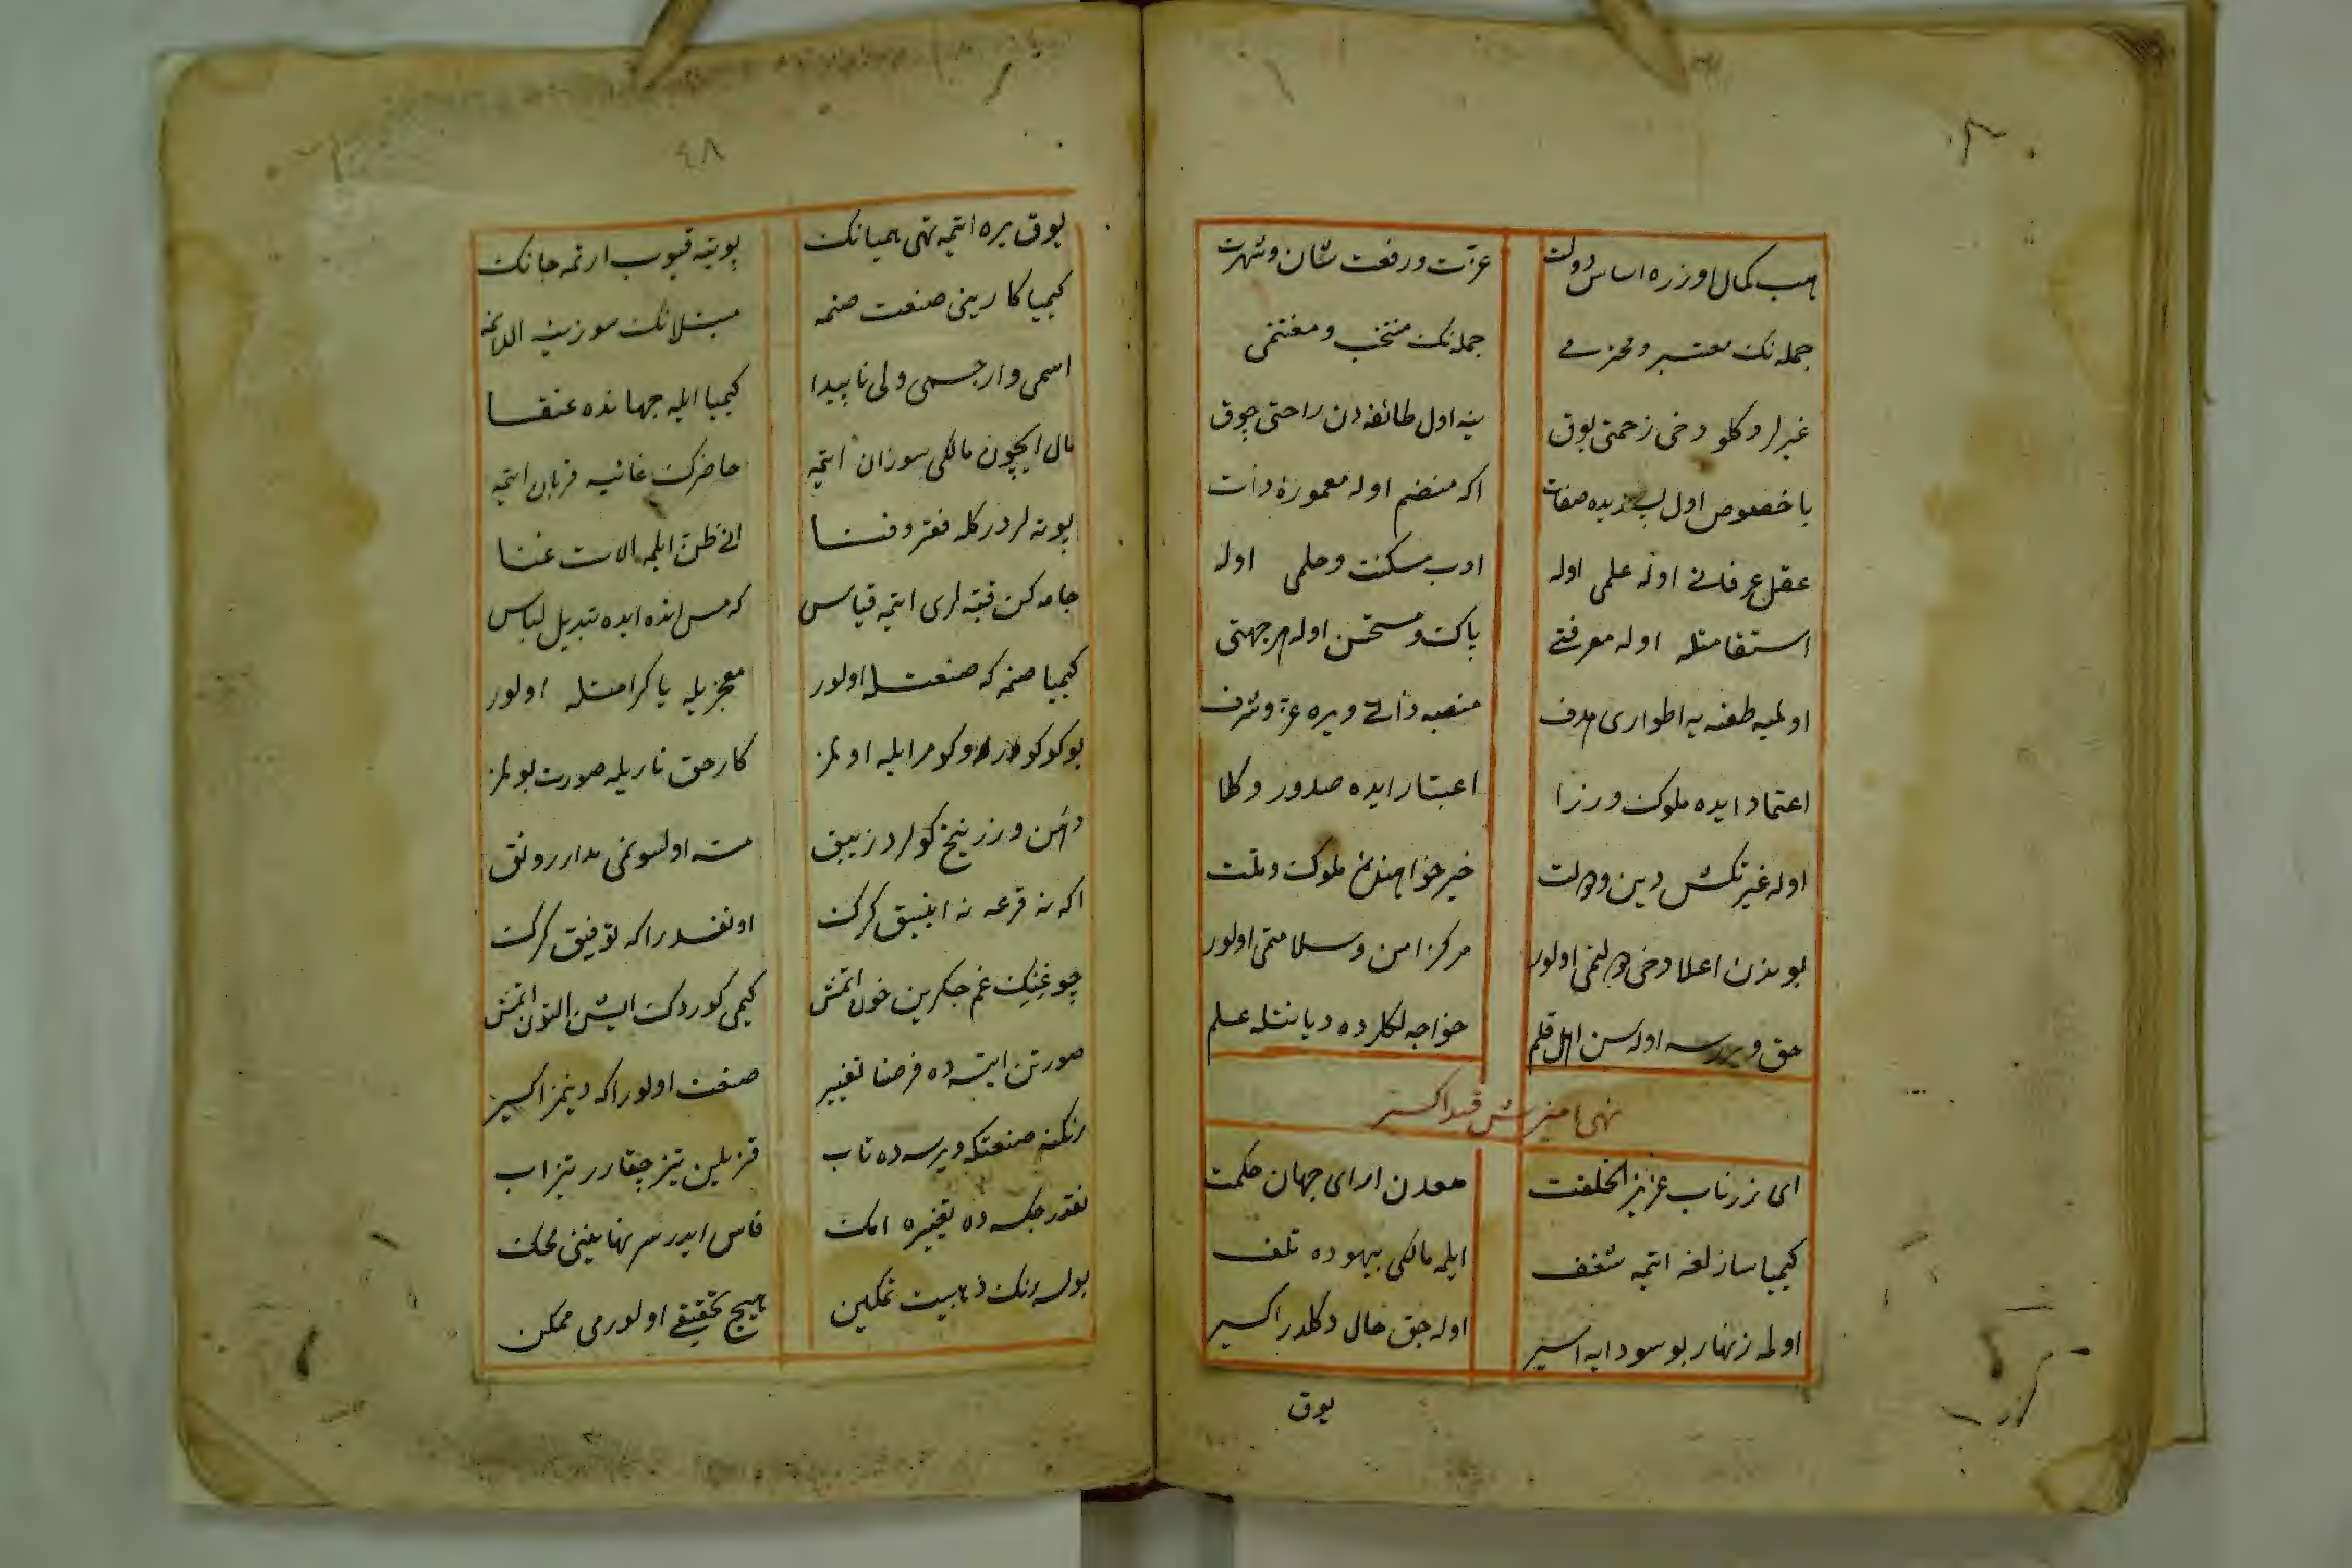 هب کمال اوزره اساس دولت
عزت و رفعت شان و شهرت
جمله‌نک معتبر و محترمی
جمله‌نک منتخب و مغتنمی
غیرلر دکلو دخی زحمتی یوق
ینه اول طائفه‌دن راحتی چوق
با خصوص اول پسندیده صفات
اکه منضم اوله معموره ذات
عقل عرفانی اوله علمی اوله
ادب مسکنت و حلمی اوله
استقامتله اوله معرفتی
پاک و مستحسن اوله هر جهتی
اولمیه طعنه‌یه اطواری هدف
منصبه ذاتی ویره عز و شرف
اعتماد ایده ملوک و وزرا
اعتبار ایده صدور و وکلا
اوله غیرتکش دین و دولت
خیر خواهنده ملوک و ملت
بوندن اعلا دخی دولتمی اولور
مرکز امن و سلامتمی اولور
حق ویررسه اوله‌سن اهل قلم
خواجه‌لکلرده دیانتله علم
نهی امیزش قید اکسیر
ای زرناب عزیز الخلقت
معدن ارای جهان حکمت
کیمیا سازلغه ایتمه شغف
ایلمه مالکی بیهوده تلف
اولمه زنهار بو سودایه اسیر
اوله‌جق حال دکلدر اکسیر
یوق
٤٨
یوق یره ایتمه تهی همیانک
پوتیه قیوب ارتمه جانک
کیمیا کارینی صنعت صنمه
مبتلانک سوزینه الدانمه
اسمی وار جسمی ولی ناپیدا
کیمیا ایله جهانده عنقا
مال ایچون مالکی سوزان ایتمه
حاضرک غائبه قربان ایتمه
پوته‌لردر کله فقر و فنا
انی ظن ایلمه الات غنا
جامه‌کن قبه‌لری ایتمه قیاس
که مس انده ایده تبدیل لباس
کیمیا صنمه که صنعتله اولور
معجزیله یا کرامتله اولور
کار حق ناریله صورت بولمز
دهن و زرنیخ کولر در زیبق
اکه نه قرعه نه انبیق کرک
اونقدر اکه توفیق کرک
چوغینک غم جکرین خون ایتمش
کیمی کوردک ایشن التون ایتمش
صورتن ایتسه‌ده فرضا تغییر
صنعت اولور اکه دینمز اکسیر
رنکنه صنعتکه ویرسه‌ده تاب
قزیلین تیز چیقارر تیزاب
نقدر چکسه‌ده تغییره امک
فاش ایدر سر نهاینی محک
بوله رنک ذهبیت تمکین
هیچ تحقیقی اولورمی ممکن